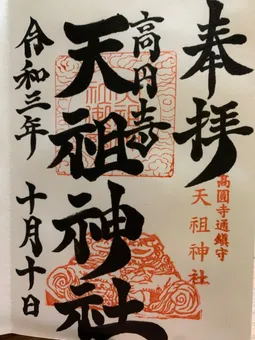 奉拝
高圓寺通鎮守
天祖神社
高円寺
天祖神社
令和三年
十月十日